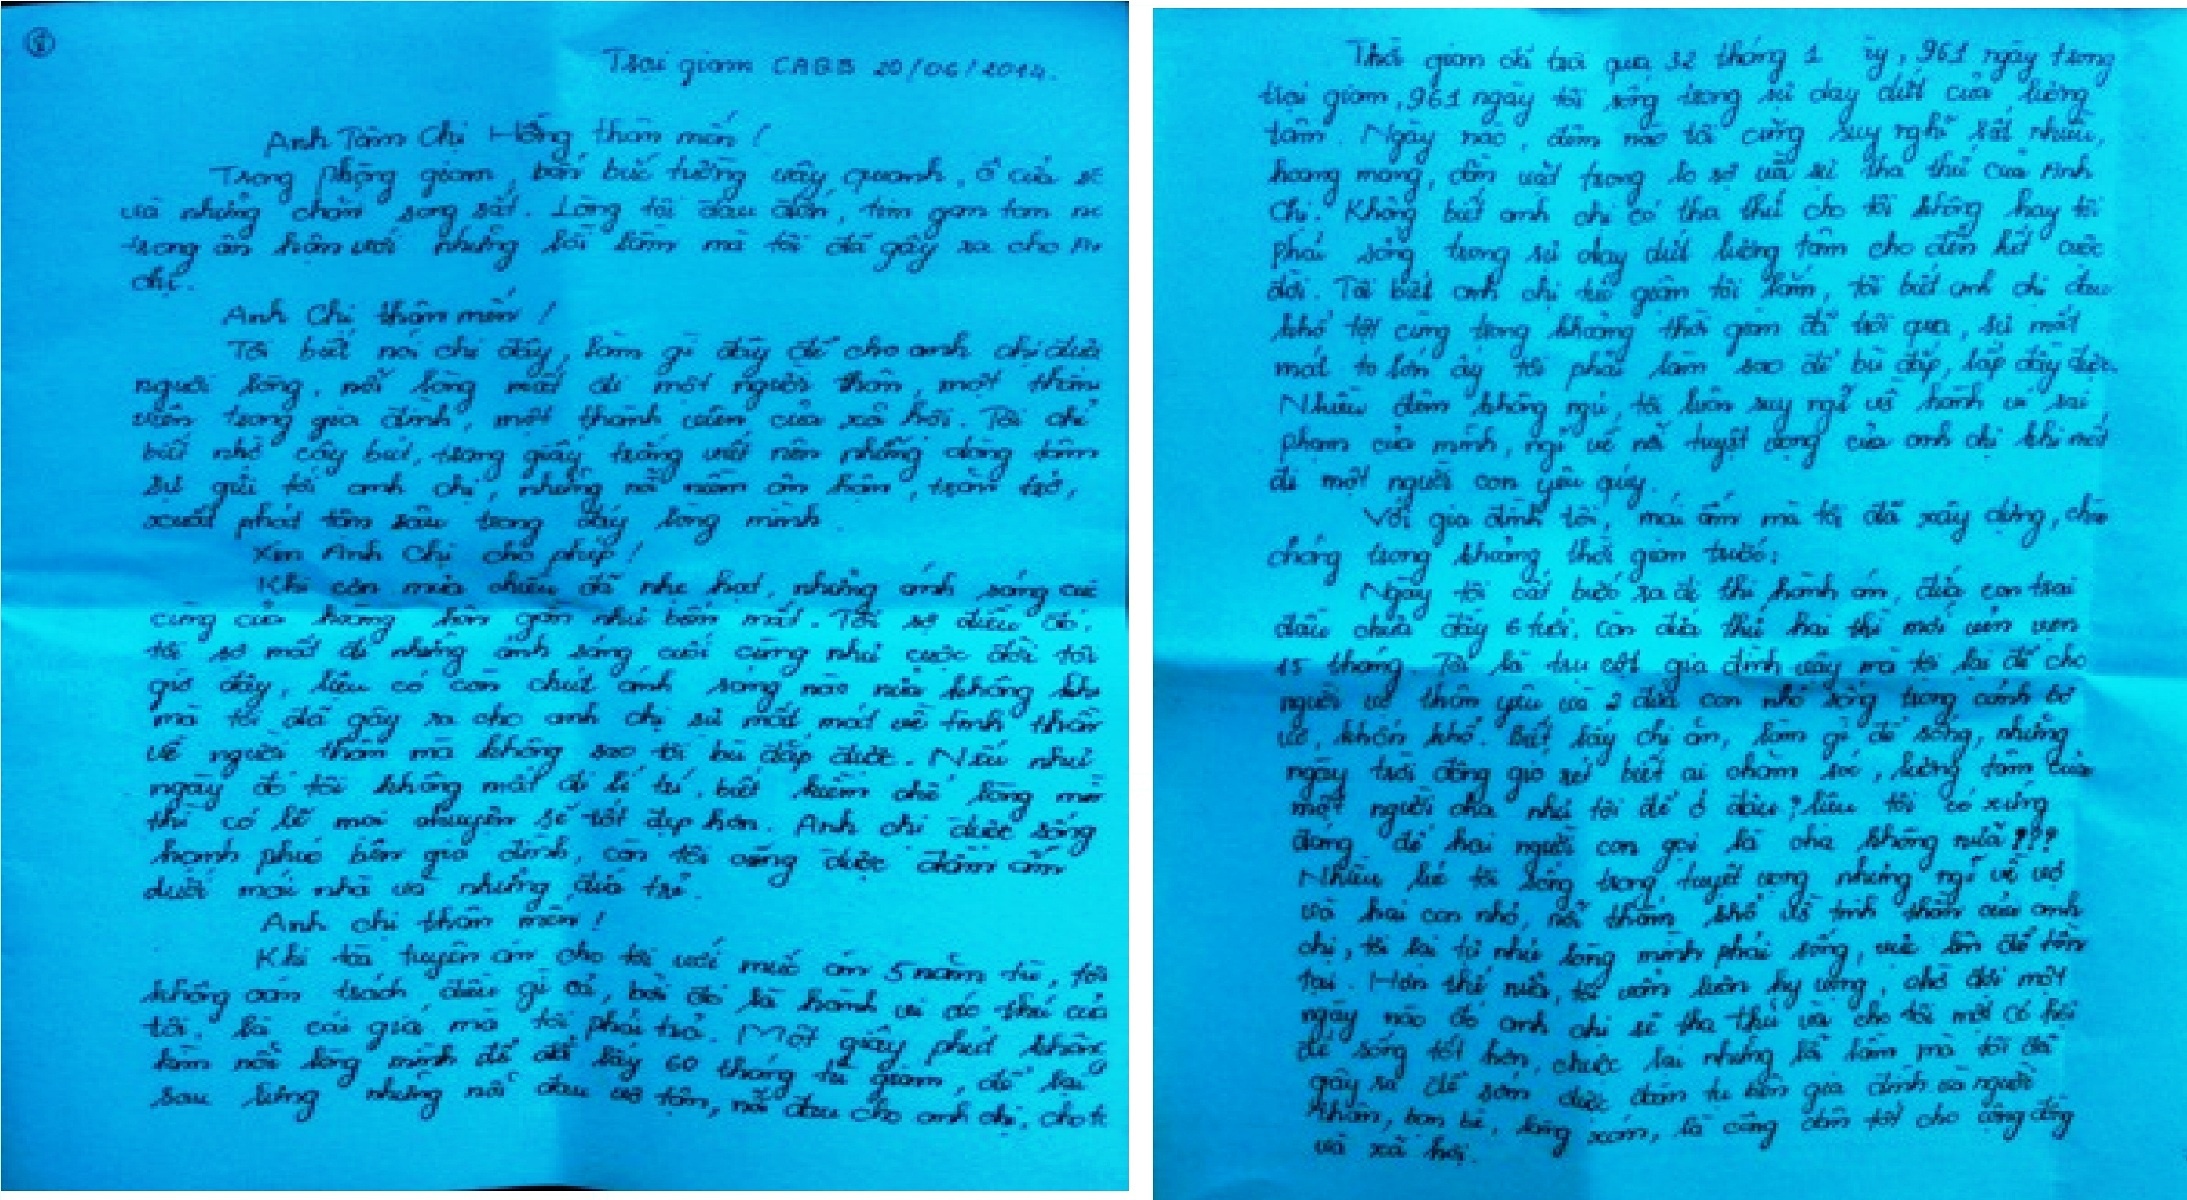 ①
Trại giam CABB 20/06/2014.
Anh Tâm Chị Hồng thân mến !
Trong phòng giam, bốn bức tường vây quanh, ô cửa sổ
và những chấn song sắt. Lòng tôi đau đớn, tim gan tan
trong ân hận với những lỗi lầm mà tôi đã gây ra cho
chị.
Anh Chị thân mến !
Tôi biết nói chi đây, làm gì đây để cho anh chị
người lòng, nỗi lòng mất đi một người thân, một thành
viên trong gia đình, một thành viên của xã hội. Tôi chỉ
biết nhờ cây bút, trang giấy trắng viết nên những dòng tâm
sự gửi tới anh chị, những nỗi niềm ân hận, trăn trở,
xuất phát tận sâu trong đáy lòng mình.
Xin Anh Chị cho phép !
Khi cơn mưa chiều đã nhẹ hạt, những ánh sáng cuối
cùng của hoàng hôn gần như biến mất. Tôi sợ điều đó,
tôi sợ mất đi những ánh sáng cuối cùng như cuộc đời tôi
giờ đây, liệu có còn chút ánh sáng nào nữa không khi
mà tôi đã gây ra cho anh chị sự mất mát về tinh thần
về người thân mà không sao tôi bù đắp được. Nếu như
ngày đó tôi không mất đi lí trí, biết kiềm chế lòng mình
thì có lẽ mọi chuyện sẽ tốt đẹp hơn. Anh chị được sống
hạnh phúc bên gia đình, còn tôi cũng được đầm ấm
dưới mái nhà và những đứa trẻ.
Anh chị thân mến !
Khi tòa tuyên án cho tôi với mức án 5 năm tù, tôi
không oán trách điều gì cả, bởi đó là hành vi cố thứ của
tôi, là cái giá mà tôi phải trả. Một giây phút không
nổi lòng mình để đổi lấy 60 tháng tù giam, để lại
sau lưng những nỗi đau vô tận, nỗi đau cho anh chị, cho
Thời gian đã trôi qua, 32 tháng 1 , 961 ngày trong
trại giam, 961 ngày tôi sống trong sự day dứt của lương
tâm. Ngày nào, đêm nào tôi cũng suy nghĩ rất nhiều,
hoang mang, dằn vặt trong lo sợ và sự tha thứ của Anh
Chị. Không biết anh chị có tha thứ cho tôi không hay tôi
phải sống trong sự day dứt lương tâm cho đến hết cuộc
đời. Tôi biết anh chị tức giận tôi lắm, tôi biết anh chị đau
khổ tột cùng trong khoảng thời gian đã trôi qua, sự mất
mát to lớn ấy tôi phải làm sao để bù đắp, lấp đầy được.
Nhiều đêm không ngủ, tôi luôn suy ngĩ về hành vi sai
phạm của mình, ngĩ về nỗi tuyệt vọng của anh chị khi mất
đi một người con yêu qúy.
Với gia đình tôi, mái ấm mà tôi đã xây dựng, che
chống trong khoảng thời gian trước:
Ngày tôi cất bước ra đi thi hành án, đứa con trai
đầu chưa đầy 6 tuổi, còn đứa thứ hai thì mới vẻn vẹn
15 tháng. Tôi là trụ cột gia đình vậy mà tôi lại để cho
người vợ thân yêu và 2 đứa con nhỏ sống trong cảnh bơ
vơ, khốn khổ. Biết lấy chi ăn, làm gì để sống, những
ngày trời đông gió rét biết ai chăm sóc, lương tâm của
một người cha như tôi để ở đâu? liệu tôi có xứng
đáng để hai người con gọi là cha không nữa???
Nhiều lúc tôi sống trong tuyệt vọng nhưng ngĩ về vợ
và hai con nhỏ, nỗi thống khổ về tinh thần của anh
chị, tôi lại tự nhủ lòng mình phải sống, vực lên để tồn
tại. Hơn thế nữa, tôi vẫn luôn hy vọng, chờ đợi một
ngày nào đó anh chị sẽ tha thứ và cho tôi một cơ hội
để sống tốt hơn, chuộc lại những lỗi lầm mà tôi đã
gây ra để sớm được đoàn tụ bên gia đình và người
thân, bạn bè, làng xóm, là công dân tốt cho cộng đồng
và xã hội.